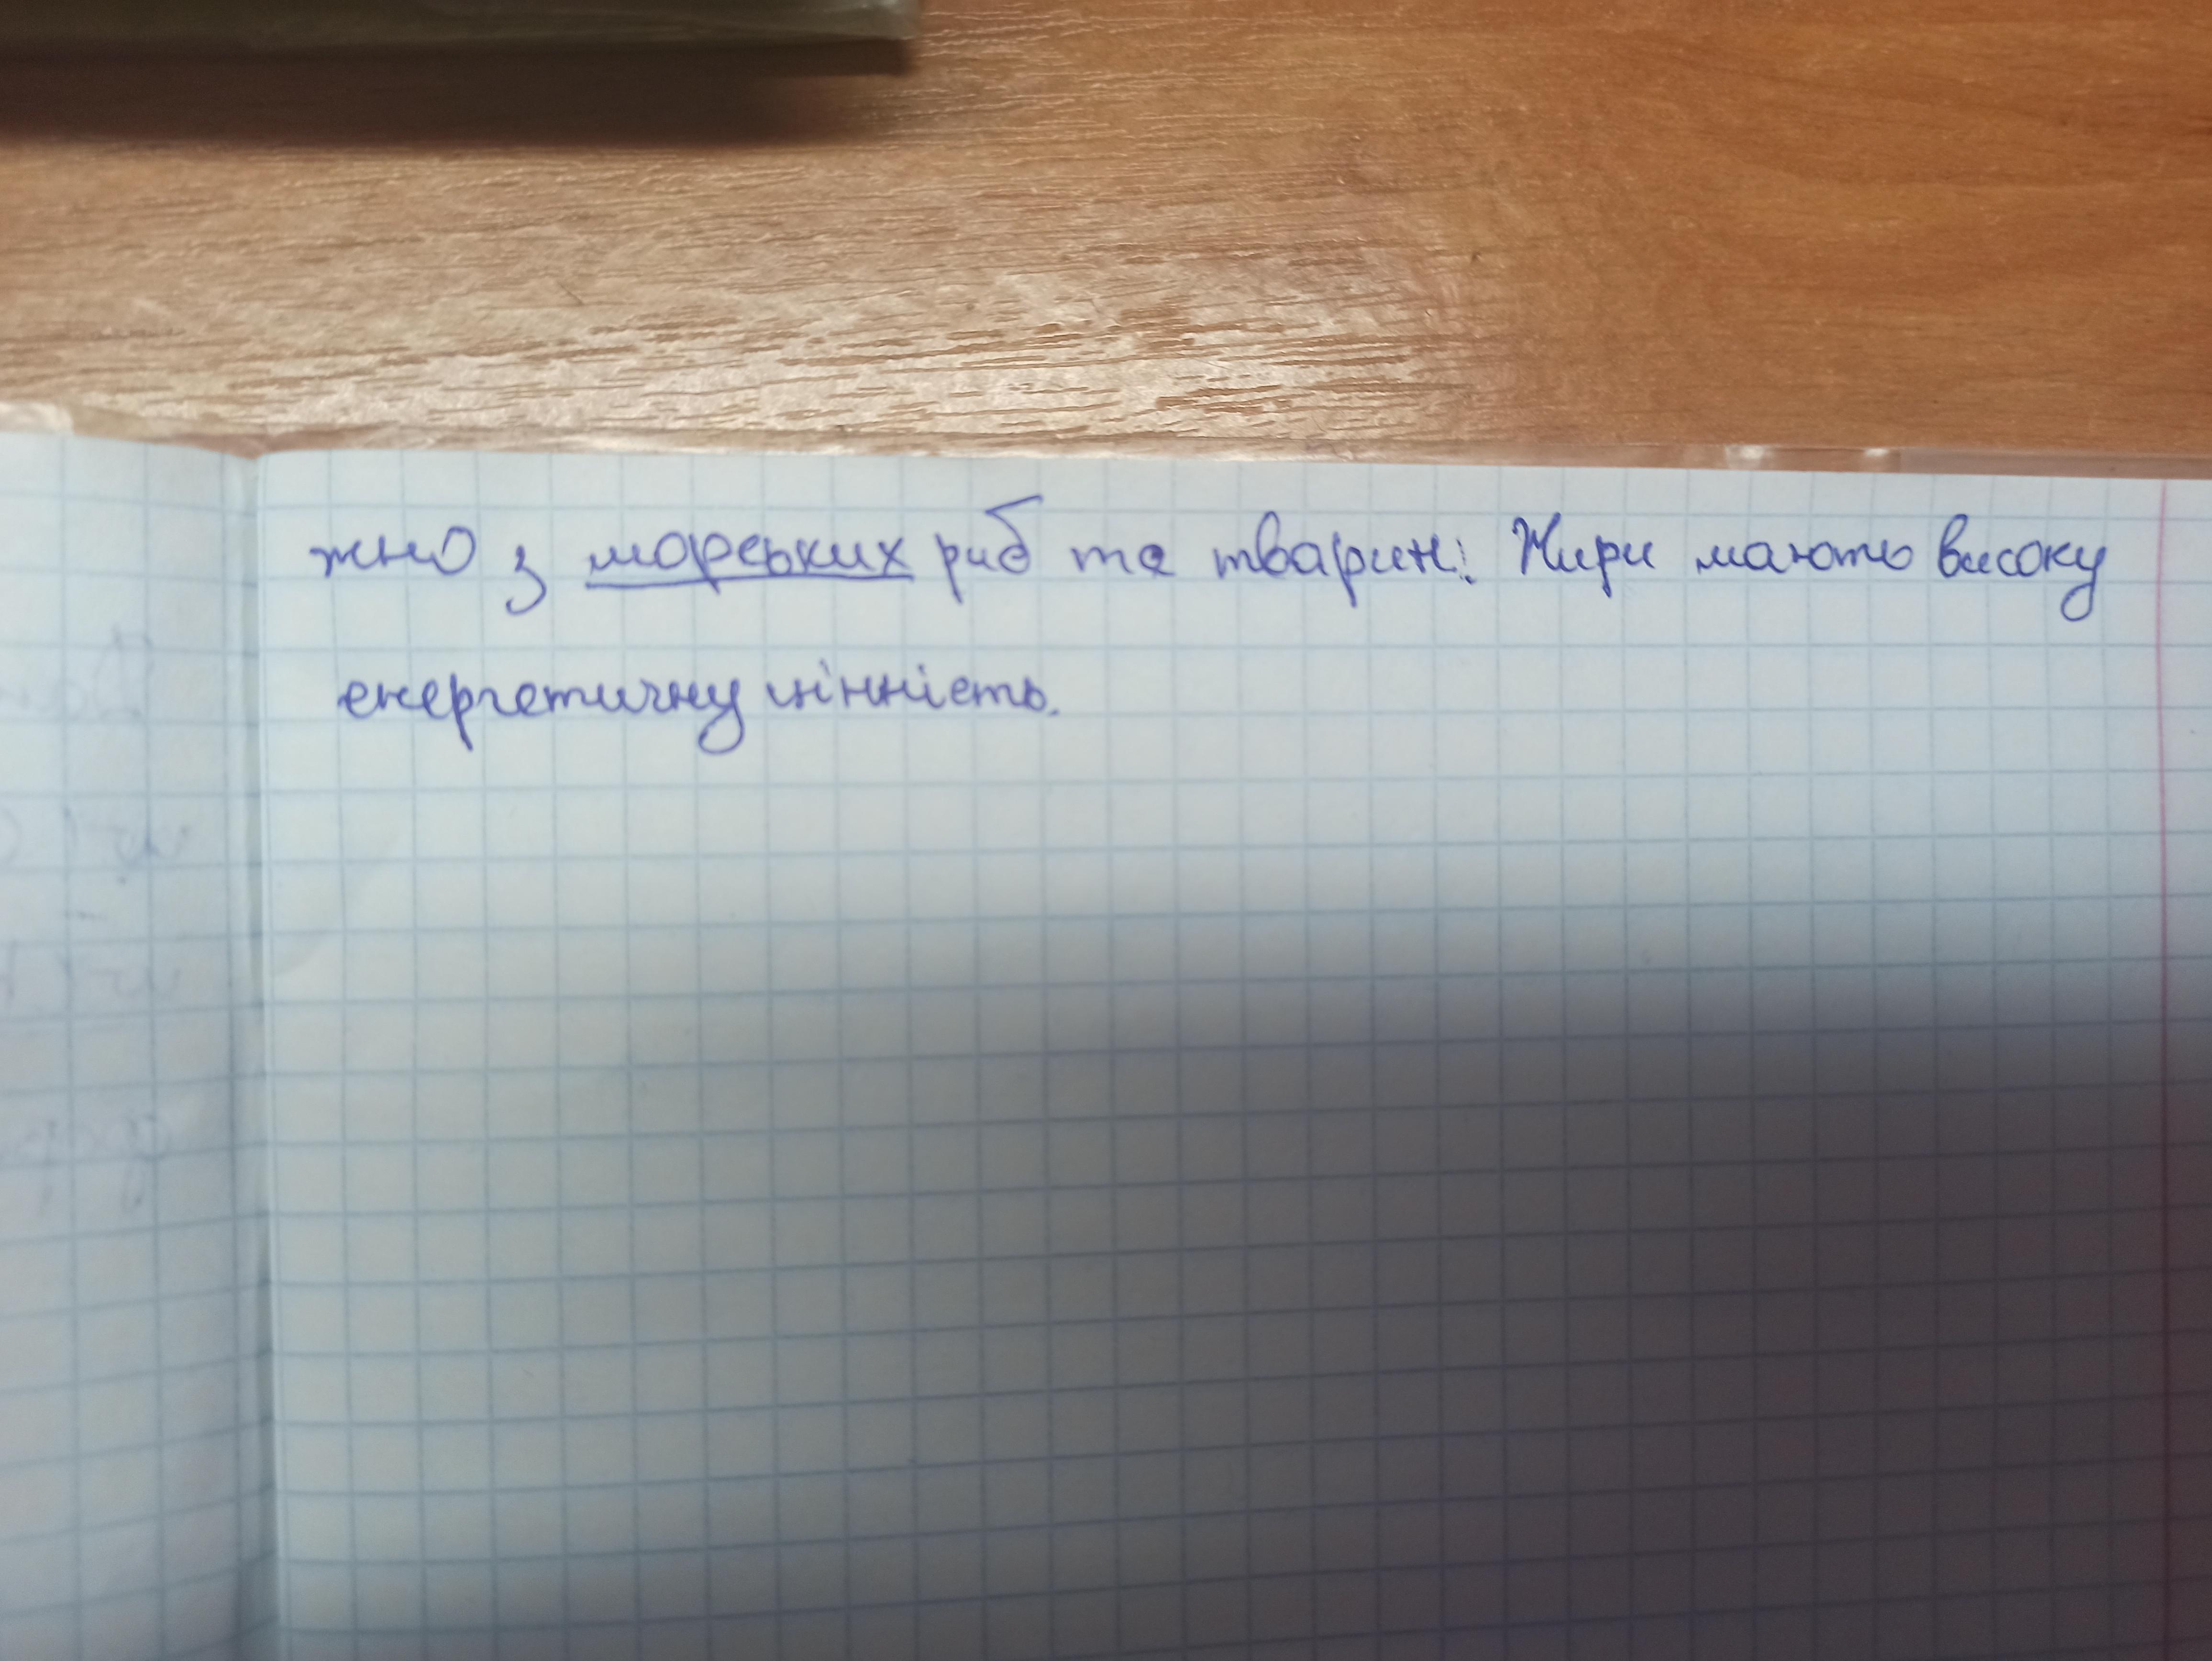 жно з морських риб та тварин. Жири мають високу
енергетичну цінність.